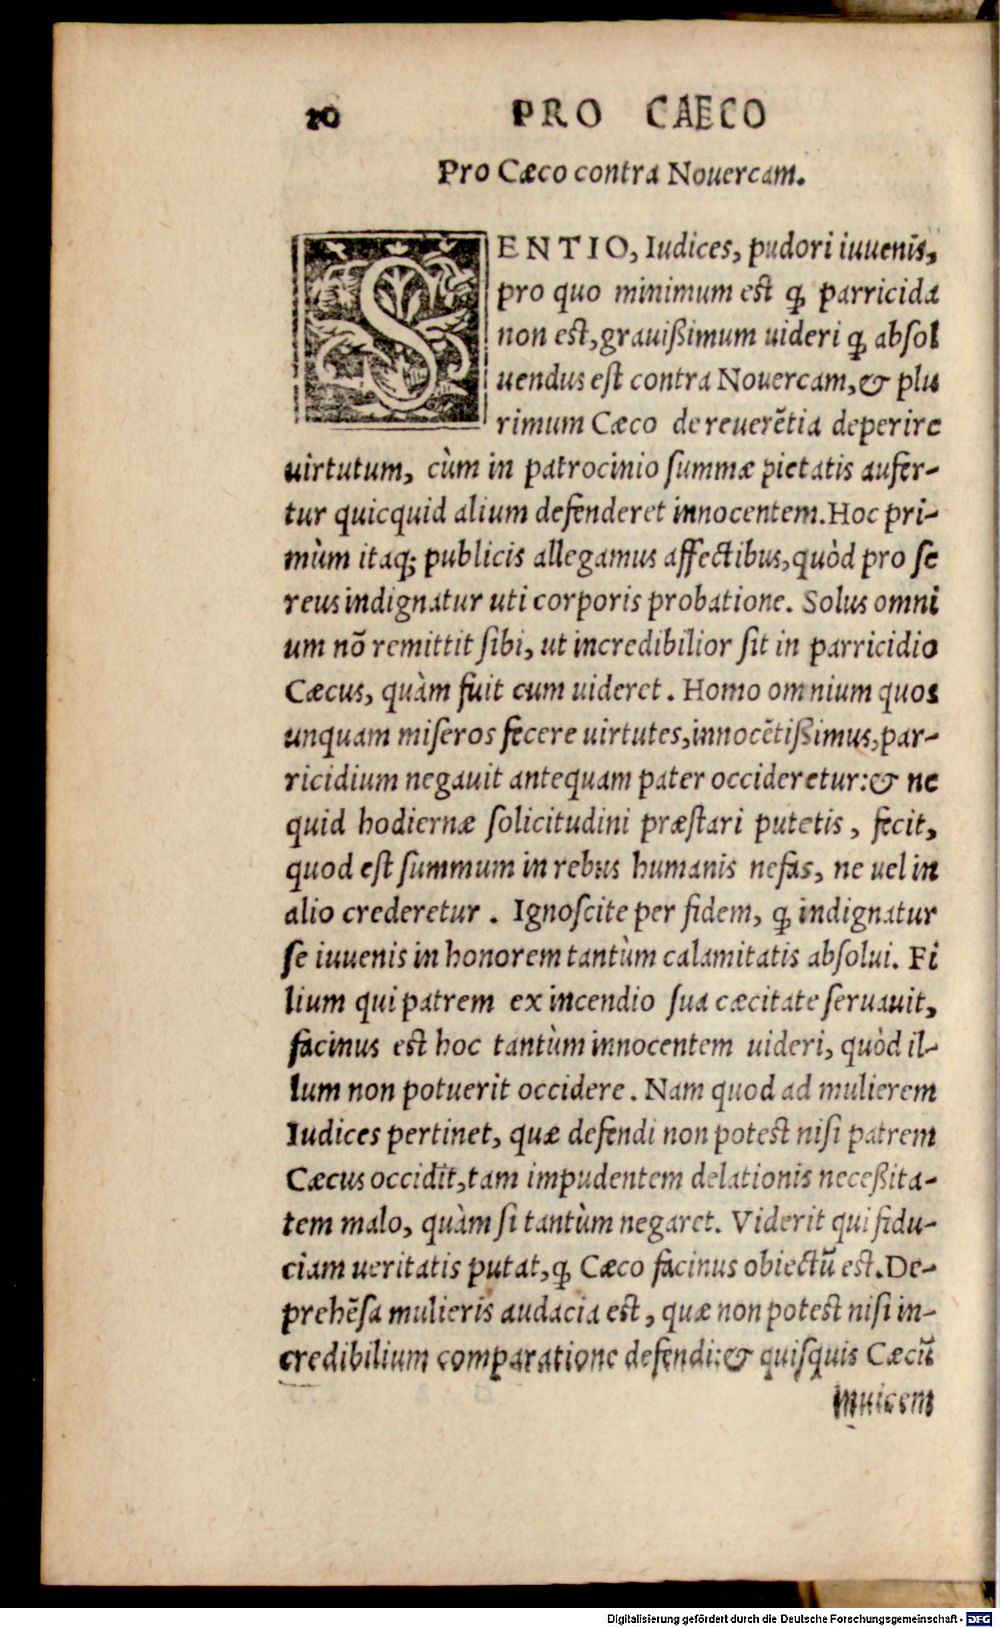 20 PRO CAECO
Pro Cæco contra Nouercam.
SENTIO, Iudices, pudori iuuenis,
pro quo minimum est ꝙ parricida
non est, grauißimum uideri ꝙ absol
uendus est contra Nouercam, & plu
rimum Cæco de reuerẽtia deperire
uirtutum, cùm in patrocinio summæ pietatis aufer-
tur quicquid alium defenderet innocentem. Hoc pri-
mùm itaq; publicis allegamus affectibus, quòd pro se
reus indignatur uti corporis probatione. Solus omni
um nõ remittit sibi, ut incredibilior sit in parricidio
Cæcus, quàm fuit cum uideret. Homo omnium quos
unquam miseros fecere uirtutes, innocẽtißimus, par-
ricidium negauit antequam pater occideretur: & ne
quid hodiernæ solicitudini præstari putetis, fecit,
quod est summum in rebus humanis nefas, ne uel in
alio crederetur. Ignoscite per fidem, ꝙ indignatur
se iuuenis in honorem tantùm calamitatis absolui. Fi
lium qui patrem ex incendio sua cæcitate seruauit,
facinus est hoc tantùm innocentem uideri, quòd il-
lum non potuerit occidere. Nam quod ad mulierem
Iudices pertinet, quæ defendi non potest nisi patrem
Cæcus occidit, tam impudentem delationis neceßita-
tem malo, quàm si tantùm negaret. Viderit qui fidu-
ciam ueritatis putat, ꝙ Cæco facinus obiectũ est. De-
prehẽsa mulieris audacia est, quæ non potest nisi in-
credibilium comparatione defendi: & quisquis Cæcũ
inuicem
Digitalisierung gefördert durch die Deutsche Forschungsgemeinschaft - DFG